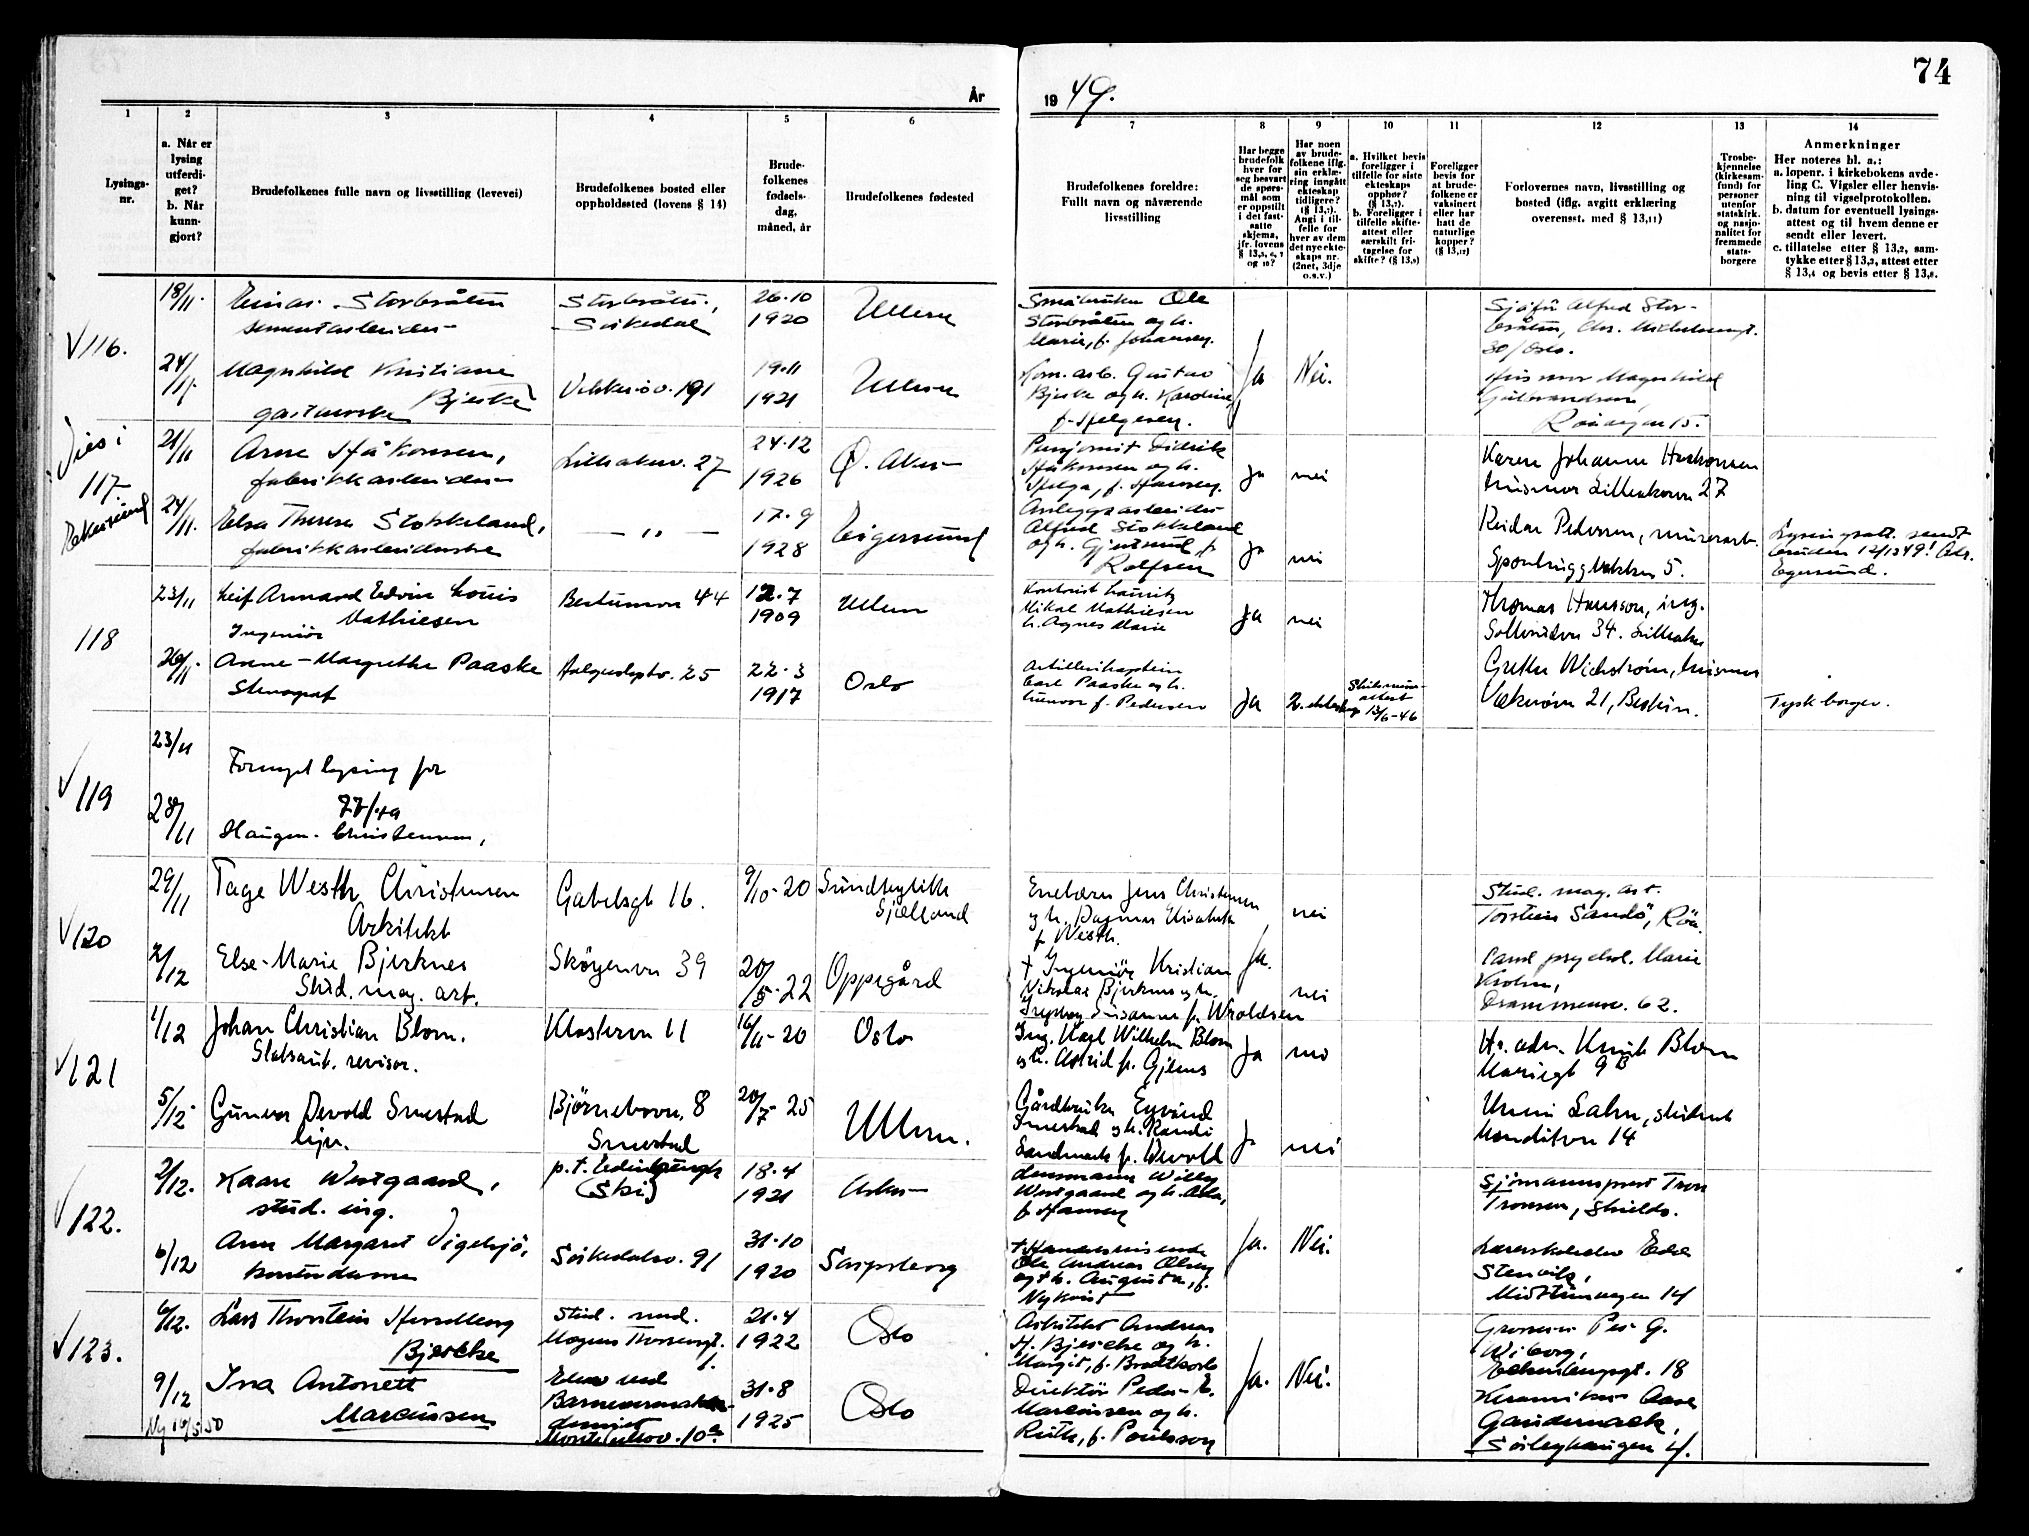 74
År
19 49.
1
2
3
4
5
6
7
8
9
10
11
12
13
14
Lysings-
nr.
a. Når er
lysing
utferdi-
get?
b. Når
kunn-
gjort?
Brudefolkenes fulle navn og livsstilling (levevei)
Brudefolkenes bosted eller
oppholdssted (lovens § 14)
Brude-
folkenes
fødsels-
dag,
måned, år
Brudefolkenes fødested
Brudefolkenes foreldre:
Fullt navn og nåværende
livsstilling
Har begge
brudefolk
hver for
seg besvart
de spørs-
mål som
er oppstilt
i det fast-
satte
skjema,
jfr. lovens
§ 13,5, 6, 7
og 10?
Har noen
av brude-
folkene iflg.
sin erklæ-
ring inngått
ekteskap
tidligere?
(§ 13,7).
Angi i til-
felle for
hver av dem
det nye ekte-
skaps nr.
(2net, 3dje
o.s.v.)
a. Hvilket bevis
foreligger i
tilfelle for siste
ekteskaps
opphør?
(§ 13,7).
b. Foreligger i
tilfelle skifte-
attest eller
særskilt fri-
tagelse for
skifte? (§ 13,9)
Foreligger
bevis for
at brude-
folkene er
vaksinert
eller har
hatt de
naturlige
kopper?
(§ 13,12)
Forlovernes navn, livsstilling og
bosted (iflg. avgitt erklæring
overensst. med § 13,11)
Trosbe-
kjennelse
(kirkesam-
fund) for
personer
utenfor
statskirk.
og nasjo-
nalitet for
fremmede
stats-
borgere
Anmerkninger
Her noteres bl. a.:
a. løpenr. i kirkebokens avde-
ling C. Vigsler eller henvis-
ning til vigselprotokollen.
b. datum for eventuell lysings-
attest og til hvem denne er
sendt eller levert.
c. tillatelse etter § 13,2, sam-
tykke etter § 13,3, attest etter
§ 13,4 og bevis etter § 13,8.
V 116.
18/11.
Einar Storbråten
sementarbeider
Storbråten,
Sörkedal
26.10
1920
Ullern
Småbruker Ole
Storbråten og h.
Marie, f. Johansen.
Sjåfør Alfred Stor-
bråten, Chr. Michelsensgt.
30, Oslo.
24/11.
Magnhild Kristiane
Bjerke
Vekkeröv. 191
19.11
1921
Ullern
Kom. arb. Gustav
Bjerke og h. Karoline,
f. Helgesen.
Ja
Nei.
Husmor Magnhild
Gulbrandsen,
Röavegen 15.
Vies i
117.
Eikersund
21/11
Arne Håkonsen,
fabrikkarbeider
Lilleakerv. 27
24.12
1926
Ø. Aker
Pensjonist Didrik
Håkonsen og h.
Helga, f. Hansen.
Ja
nei
Karen Johanne Haakonsen
husmor Lilleakervn 27
24/11.
Elsa Therese Stokkeland,
fabrikkarbeiderske
— " —
17.9
1928
Eigersund
Anleggsarbeider
Alfred Stokkeland
og h. Gjertrud f.
Rolfsen
Ja
nei
Reidar Pedersen, murerarb.
Sponhuggbakken 5.
Lysingsatt. sendt
bruden 12/12 49!
Egersund.
118
23/11
Leif Armand Edvin Louis
Mathiesen
Ingeniör
Bestumvn 44
12.7
1909
Ullern
Kontorist Lauritz
Mikal Mathiesen
h. Agnes Marie
Ja
nei
Thomas Hansson, ing.
Sollerudvn 34. Lilleaker
26/11.
Anne-Margrethe Paaske
Stenograf
22.3
1917
Oslo
Artillerikaptein
Carl Paaske og h.
f. Pedersen
Ja
attest
13/6-46
Grethe Wickström, husmor
Vækerövn 21, Bestun.
Tysk borger.
V 119
23/11
Fornyet lysing for
77/49
28/11
Haugen - Christensen,
V 120
29/11
Tage Westh Christensen
Arkitekt
Gabelsgt 16.
9/10-20
Sundbylille
Sjælland
Jens Christensen
og h. Dagmar Elisabeth
f. Westh.
nei
Stud. mag. art.
Torstein Sandö, Röa.
2/12
Else-Marie Bjerknes
Stud. mag. art.
Skøyenvn 39
20/5-22
Oppegård
+ Ingeniör Kristian
Nikolai Bjerknes og h.
Ingeborg Susanne f. Wroldsen
Ja.
nei
Cand psychol. Marie
Krohn,
Drammensv. 62.
V 121
1/12
Johan Christian Blom.
Statsaut. revisor.
Klostervn 11
16/11-20
Oslo
Ing. Karl Wilhelm Blom
og h. Astrid f. Gjems
Ja
nei
H.r. adv. Knut Blom
Mariesgt 9B
5/12-
Gunvor Devold Smestad
Björnebovn. 8
Smestad
20/7-25
Ullern.
Gårdbruker Eyvind
Smestad og h. Randi
Sandmark f. Devold
Ja
nei
Unni Lahn, student
Monolitvn 14
V 122.
2/12.
Kaare Westgaard,
stud. ing.
p.t. Edinburgh
(Ski)
18.4
1921
Asker
Lensmann Willy
Westgaard og h. Asta,
f. Hansen
Sjömannsprest Tron
Tronsen, Shields.
6/12
Anna Margaret Vigelsjö,
kontordame
Sörkedalsv. 91
31.10
1920
Sarpsborg
+ Handelsreisende
Ole Andreas Olsen
og + h. Augusta, f.
Nykvist
Ja.
Nei.
Midttunvegen 14
V 123.
6/12.
Lars Thorstein Herselberg
Bjercke
Stud. med.
Magnus Thronsengt.
21.4
1922
Oslo
Arkitekt Andreas
H. Bjercke og h.
Margit, f. Brodtkorb
Grosserer Per G.
Wiborg,
Eckersbergsgt. 18
9/12
Ny 10/5 50
Ina Antonett
Marcussen
Elev ved
31.8
1925
Oslo
Direktör Peder E.
Marcussen og h.
Ruth, f. Poulsson
Ja.
Nei.
Keramiker Aase
Gaudernack,
Sörbyhaugen 4.